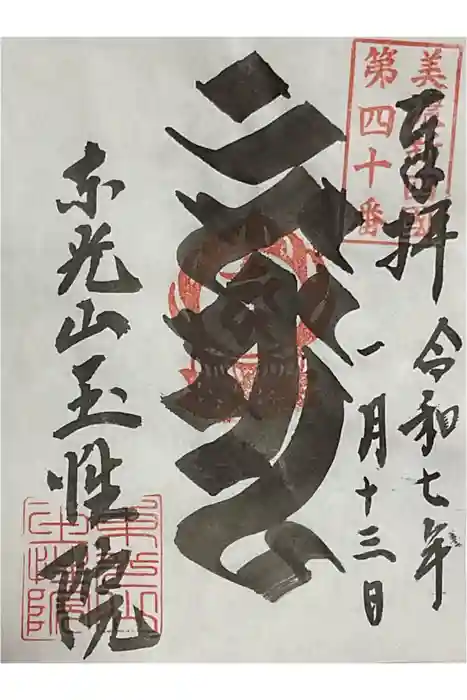 美濃新四國
第四十番
奉拝
令和七年
一月十三日
东光山玉性院